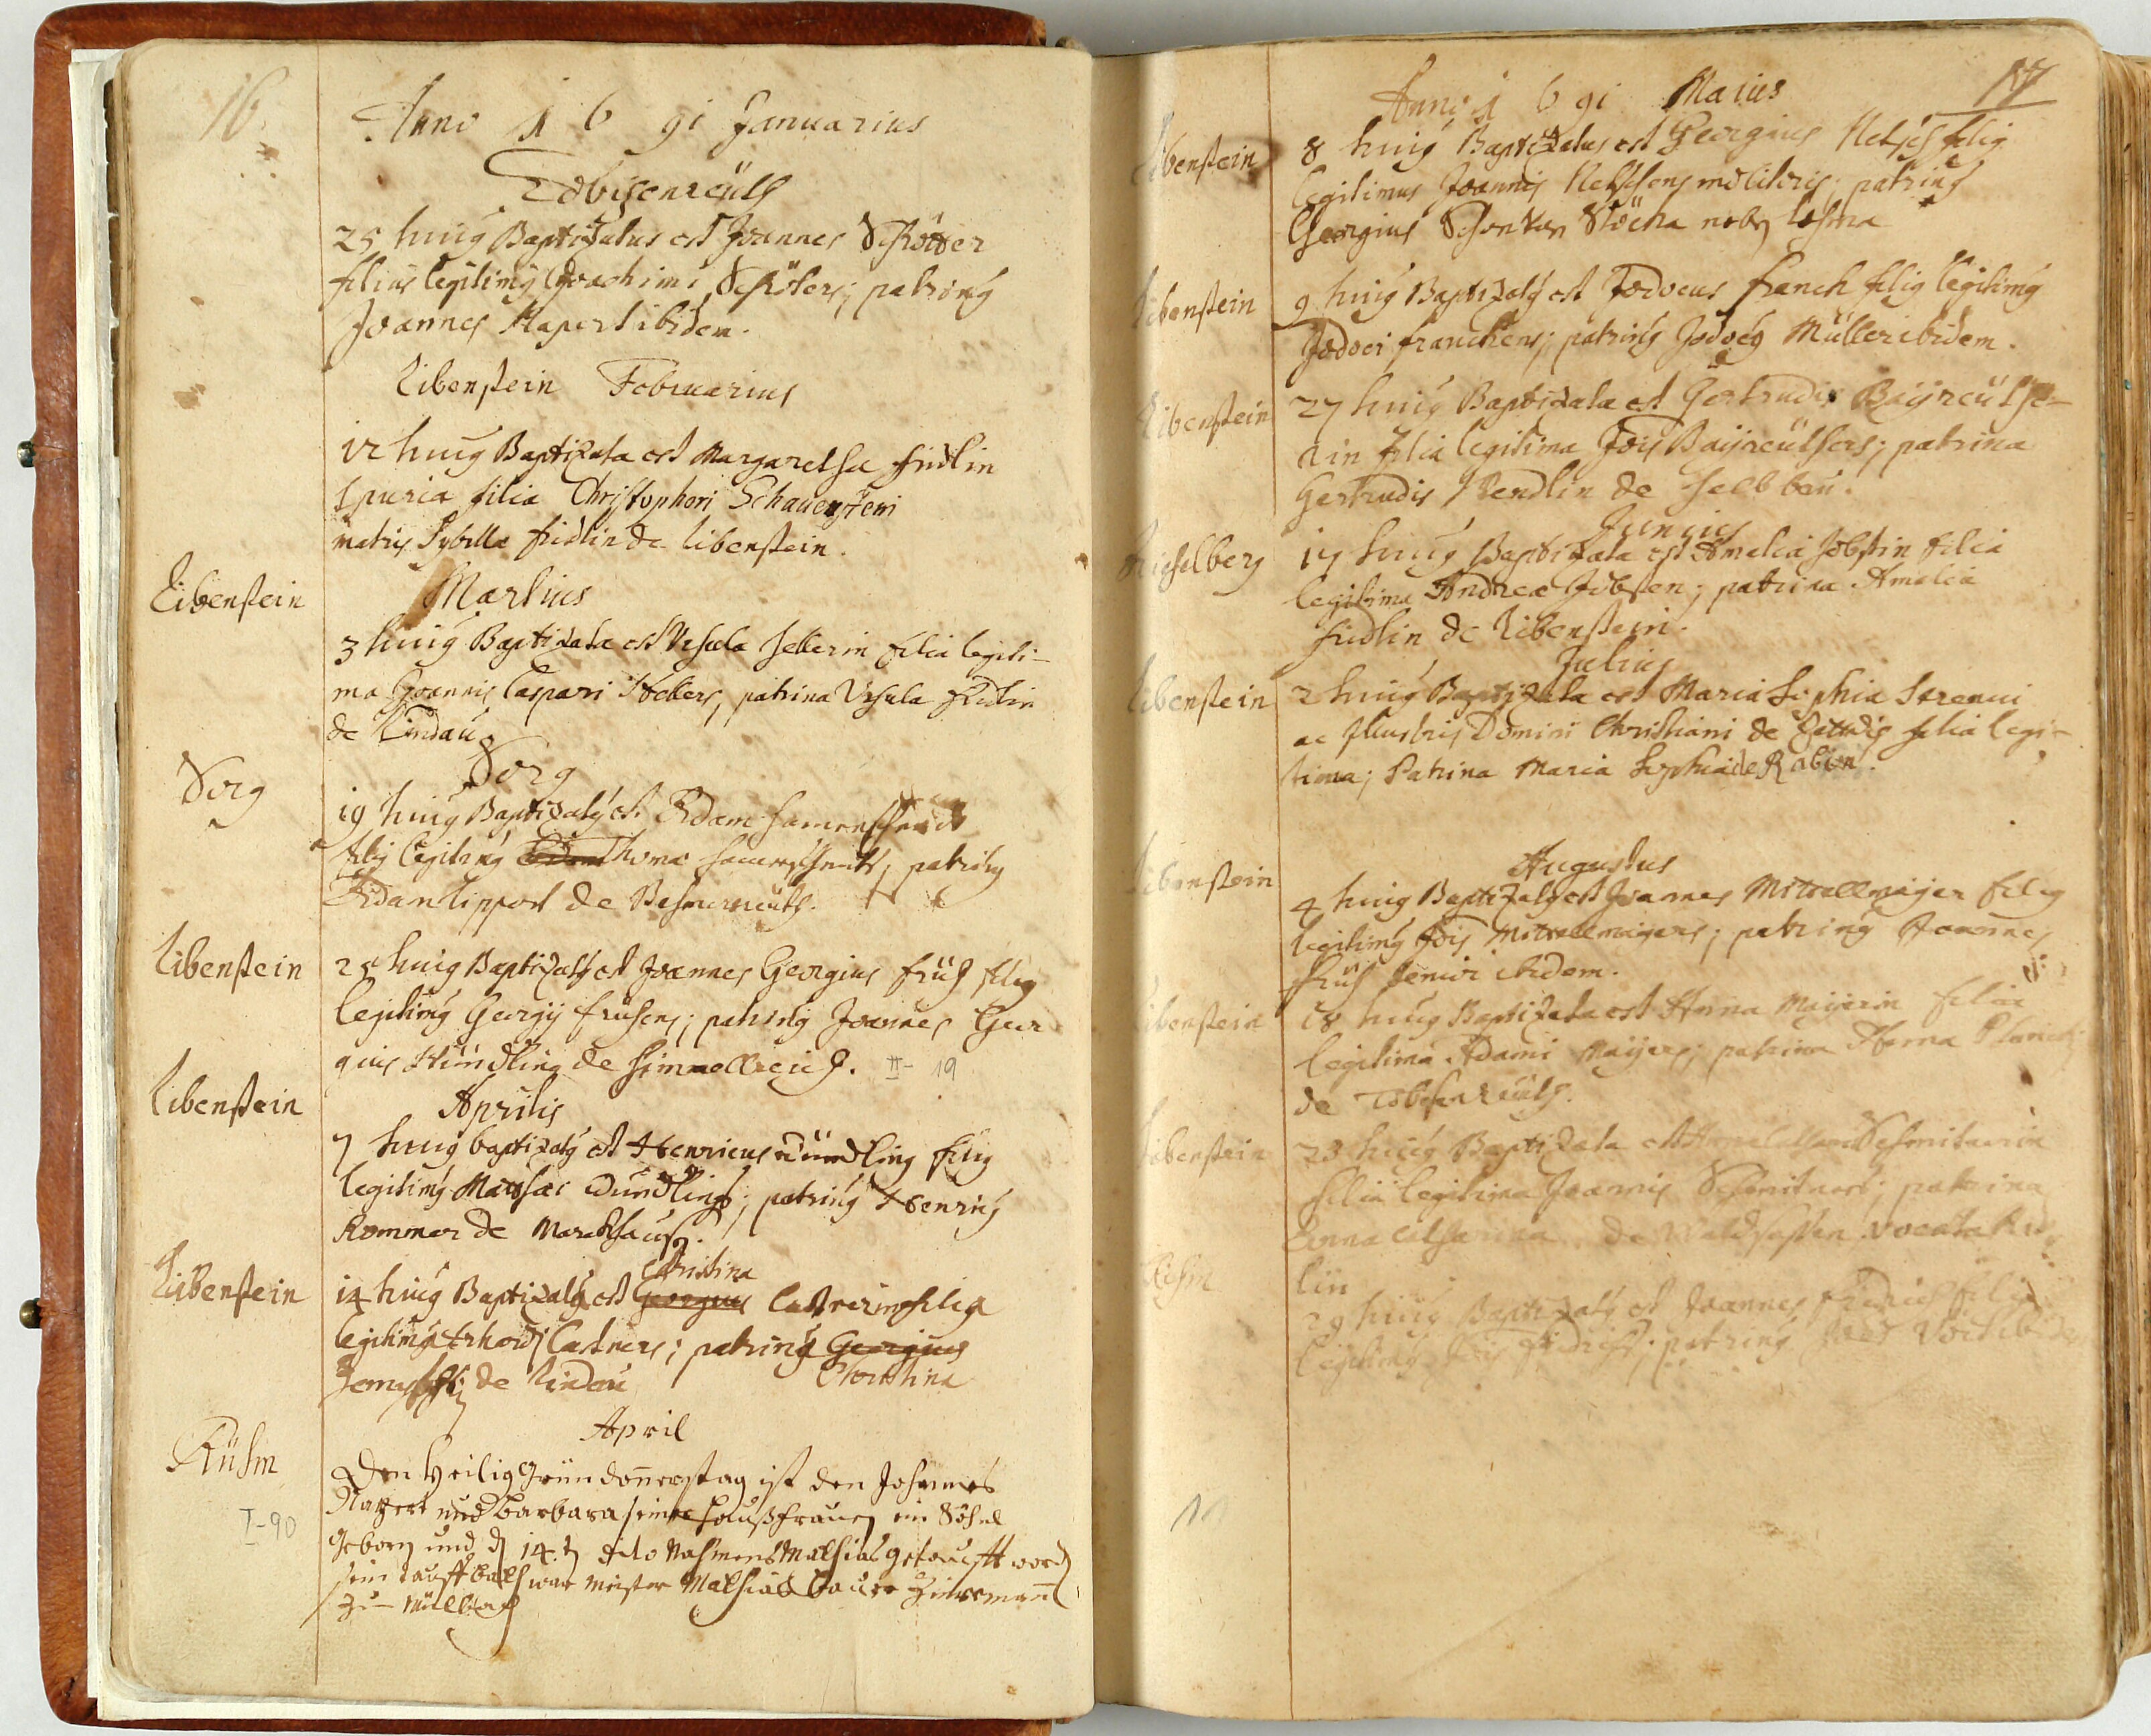 16
Anno 1691 Januarius
Tobisenreüth
25 huius Baptizatus est Joannes Schötter
filius legitimus Joachimi Schöters; patrinus
Joannes Hapert ibidem.
Libenstein Februarius
12 huius Baptizata est Margaretha fridlin
spuria filia Christophori Schauenstein
matris Sybilla fridlin de libenstein.
Libenstein
Martius
3 huius Baptizata est Ursula hellerin filia legiti-
ma Joannis Caspari Hellers, patrina Ursula
de Lindau
Sorg
Sorg
19 huius Baptizatus est Adam
filius legitimus Adam Thomae patrinus
Adam lippert de
Libenstein
25 huius Baptizatus est Joannes Georgius früh filius
legitimus Georgij frühens; patrinus Joannes Geor
gius Hündling de himmellreich. II-19
Libenstein
Aprilis
7 huius baptizatus est Henricus Dündling filius
legitimus Mathaei Dündlings; patrinus Henrius
Rommer de Markhausen.
Christina
Libenstein
14 huius Baptizatus est Georgius Castnerin filia
legitimus Erhardi Castners; patrinus Georgius
de Lindau Christina
April
Rühm
Den Heilig Grün donnerstag ist den Johannes
und Barbara seiner Haußfrauen ein Söhnl
I-90
geborn und d 14. dito Nahmens Mathias getaufft word
sein tauffbath war Meister Mathias Baur Zimermann
zu Mülbach
17
Anno 1691 Maius
Libenstein
8 huius Baptizatus est Georgius Netsch filius
legitimus Joannis Netschens molitoris; patrinus
Georgius von
Libenstein
9 huius Baptizatus est Jodocus franck filius legitimus
Jodoci franckens; patrinus Jodocus Müller ibidem.
Libenstein
27 huius Baptizata est Gertrudis Baijreüthe-
rin filia legitima Jois Baijreüthers; patrina
Gertrudis Wendlin de Selb
Junius
17 huius Baptizata est Amalia Jobstin filia
legitima Andreae Jobsten; patrina Amalia
fridlin de Libenstein.
Julius
Libenstein
2 huius Baptizata est Maria Sophia Strenui
ac Illustris Domini Christiani de filia legi-
tima; Patrina Maria Sophia de Raben.
Augustus
Libenstein
4 huius Baptizatus est Joannes Mittellmaijer filius
legitimus Jois Mittellmaijers; patrinus Joannes
früh Senior ibidem.
Libenstein
18 huius Baptizata est Anna Maijerin filia
legitima Adami Maijers; patrina Anna
de Tobisenreüth.
Libenstein
23 huius Baptizata est
filia legitima Joannis patrina
Anna Catharina de Waldsassen vocata
lin
Rühm
29 huius Baptizatus est Joannes fridrich filius
legitimus Jois fridrich; patrinus